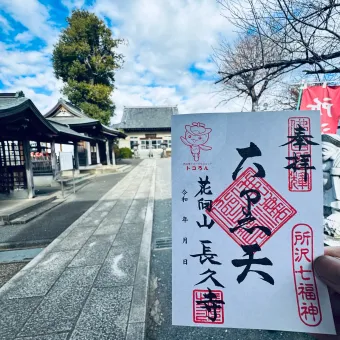 奉拝
大黒天
所沢七福神
花向山 長久寺
令和 年 月 日
トコろん
所